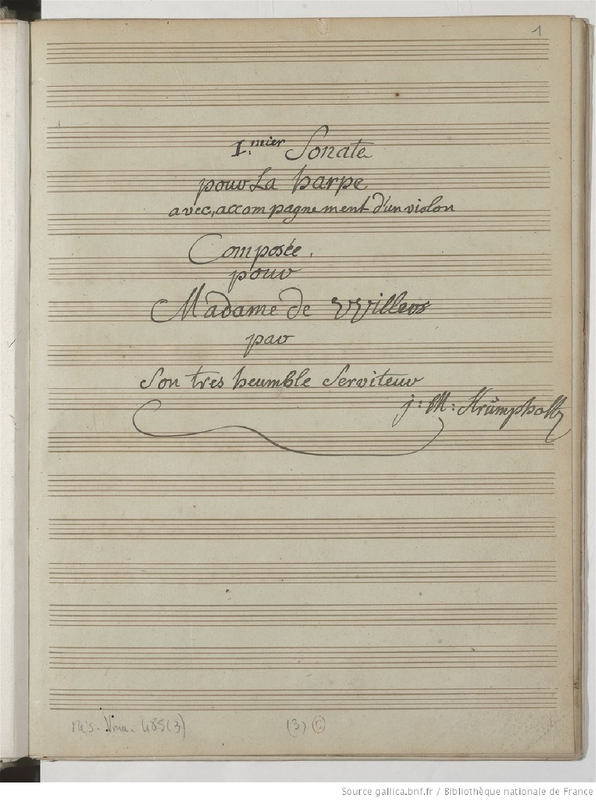 1
1.mier Sonate
pour La harpe
avec, accompagnement d'un violon
Composée.
pour
Madame de VVillers
par
Son tres heumble Serviteur
j: M: Krumpholtz
Ms. Vma. 485(3)
(3) C
Source gallica.bnf.fr / Bibliothèque nationale de France